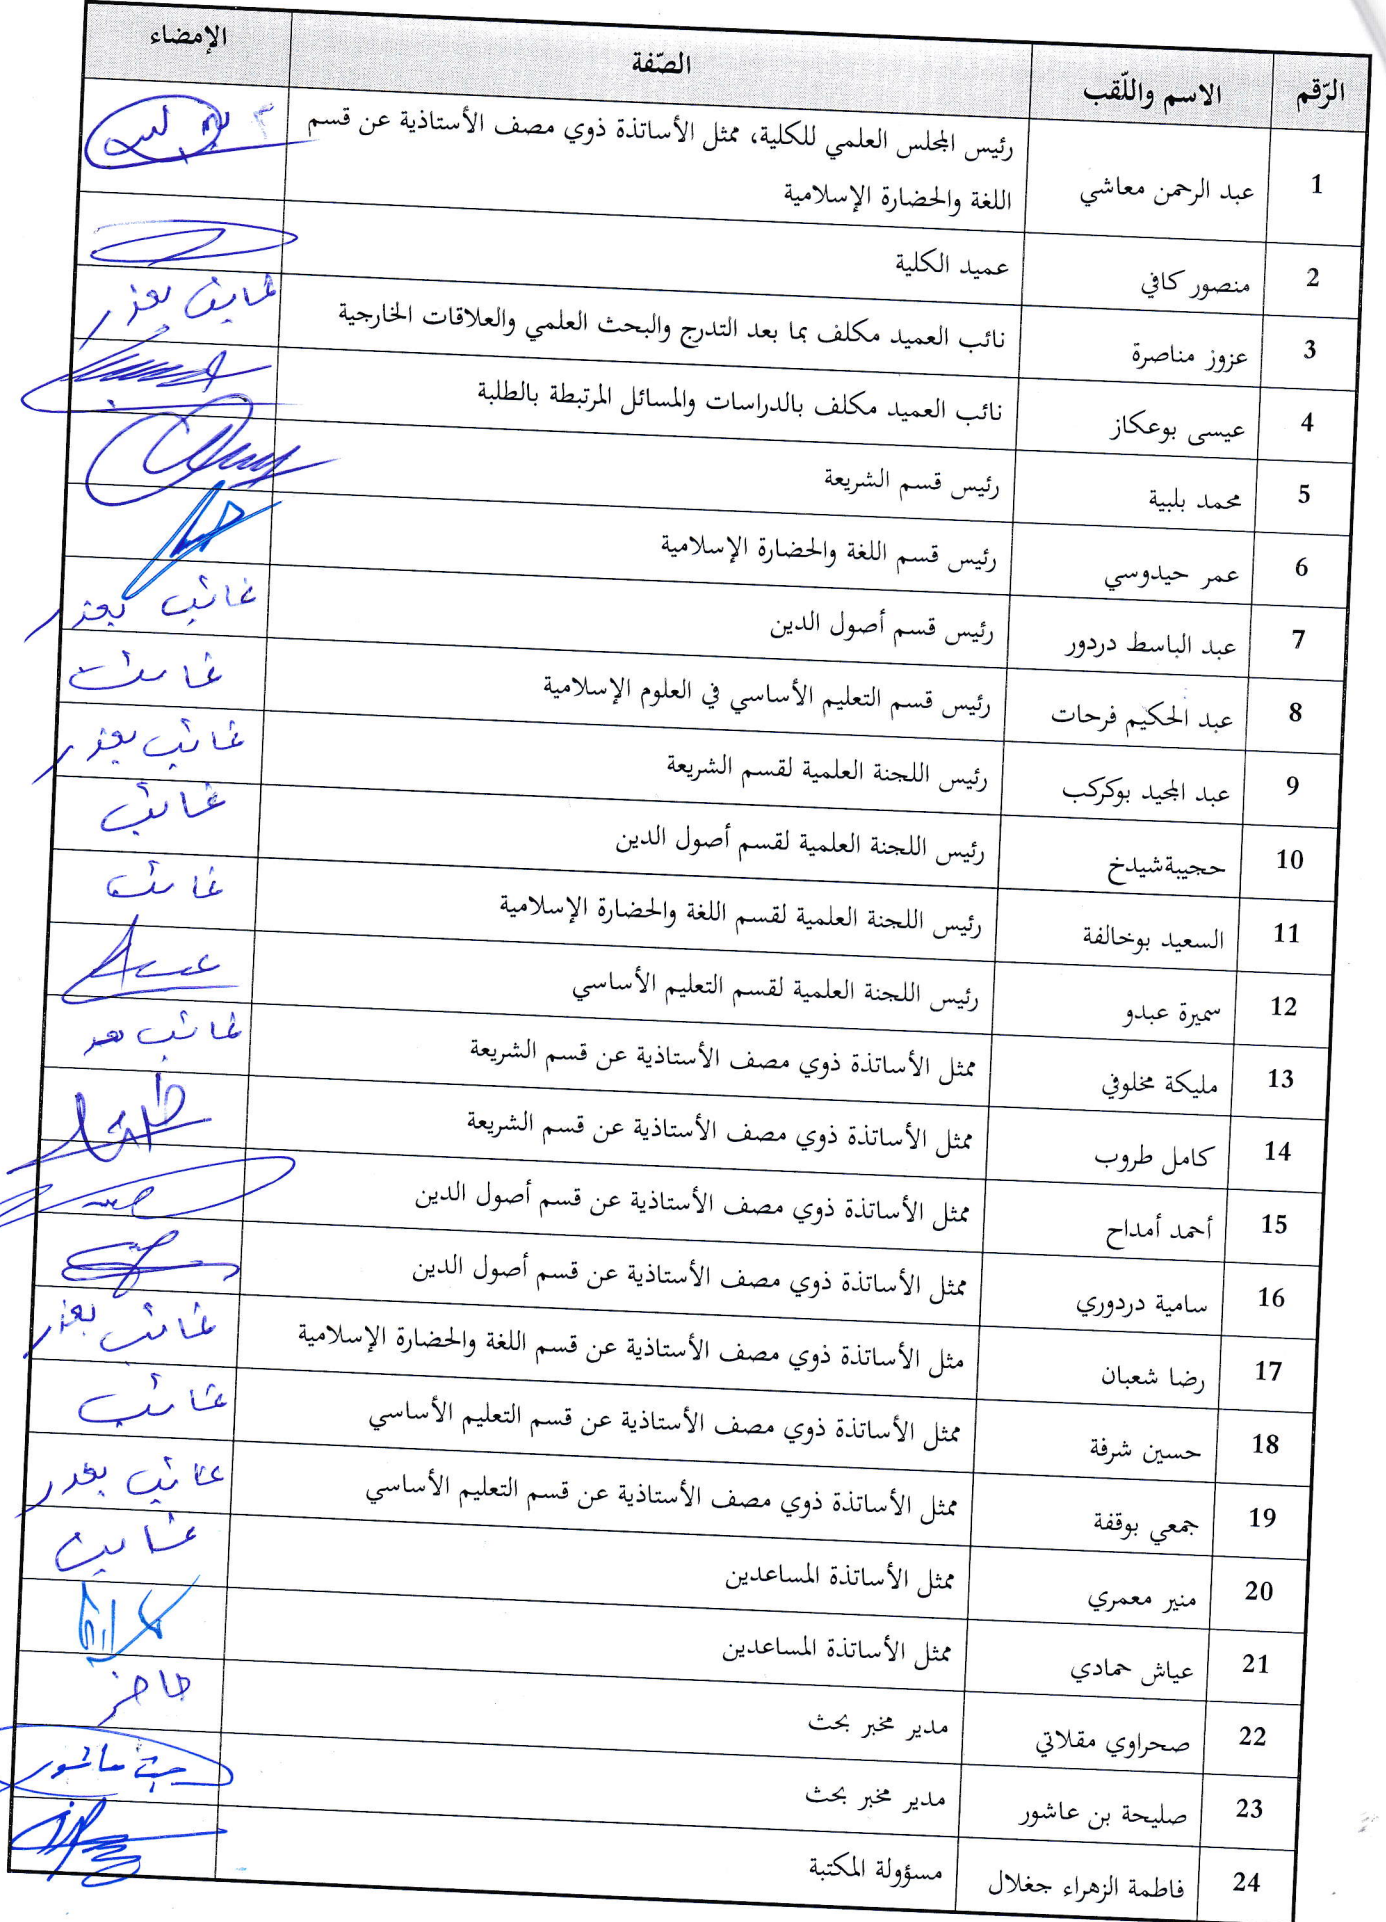 الرّقم الاسم واللّقب الصّفة الإمضاء
1 عبد الرحمن معاشي رئيس المجلس العلمي للكلية، ممثل الأساتذة ذوي مصف الأستاذية عن قسم
اللغة والحضارة الإسلامية
2 منصور كافي عميد الكلية
3 عزوز مناصرة نائب العميد مكلف بما بعد التدرج والبحث العلمي والعلاقات الخارجية غايب بعذر
4 عيسى بوعكاز نائب العميد مكلف بالدراسات والمسائل المرتبطة بالطلبة
5 محمد بلبية رئيس قسم الشريعة
6 عمر حيدوسي رئيس قسم اللغة والحضارة الإسلامية
7 عبد الباسط دردور رئيس قسم أصول الدين غائب بعذر
8 عبد الحكيم فرحات رئيس قسم التعليم الأساسي في العلوم الإسلامية غائب
9 عبد المجيد بوكركب رئيس اللجنة العلمية لقسم الشريعة غائب بعذر
10 حجيبةشيدخ رئيس اللجنة العلمية لقسم أصول الدين غائب
11 السعيد بوخالفة رئيس اللجنة العلمية لقسم اللغة والحضارة الإسلامية غائب
12 سميرة عبدو رئيس اللجنة العلمية لقسم التعليم الأساسي
13 مليكة مخلوفي ممثل الأساتذة ذوي مصف الأستاذية عن قسم الشريعة غائب
14 كامل طروب ممثل الأساتذة ذوي مصف الأستاذية عن قسم الشريعة
15 أحمد أمداح ممثل الأساتذة ذوي مصف الأستاذية عن قسم أصول الدين
16 سامية دردوري ممثل الأساتذة ذوي مصف الأستاذية عن قسم أصول الدين
17 رضا شعبان مثل الأساتذة ذوي مصف الأستاذية عن قسم اللغة والحضارة الإسلامية غائب بعذر
18 حسين شرفة ممثل الأساتذة ذوي مصف الأستاذية عن قسم التعليم الأساسي غائب
19 جمعي بوقفة ممثل الأساتذة ذوي مصف الأستاذية عن قسم التعليم الأساسي غائب بعذر
20 منير معمري ممثل الأساتذة المساعدين غايب
21 عياش حمادي ممثل الأساتذة المساعدين
22 صحراوي مقلاتي مدير مخبر بحث حاضر
23 صليحة بن عاشور مدير مخبر بحث بن عاشور
24 فاطمة الزهراء جغلال مسؤولة المكتبة